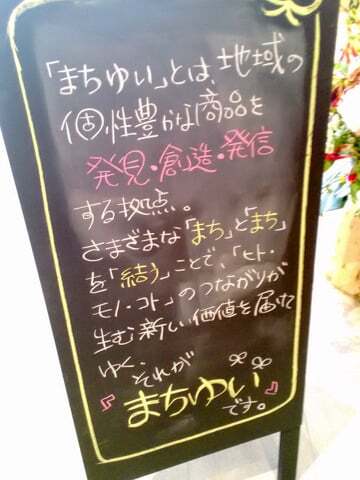 「まちゆい」とは、地域の
個性豊かな商品を
発見・創造・発信
する拠点。
さまざまな「まち」と「まち」
を「結う」ことで、「ヒト・
モノ・コト」のつながりが
生む新しい価値を届けて
ゆく、
それが
『まちゆい』
です。